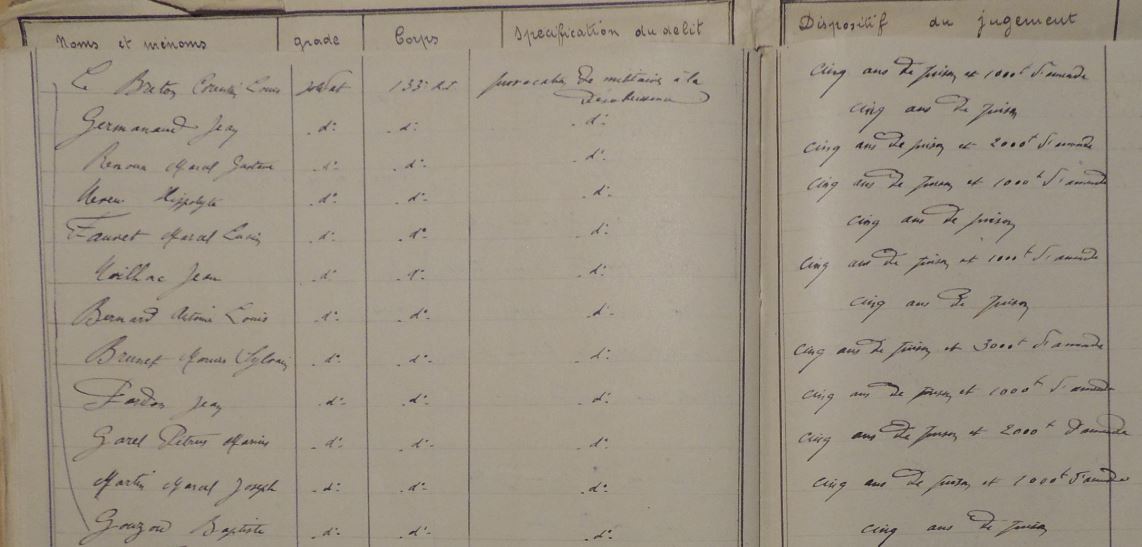 Noms et prénoms grade Corps Spécification du délit Dispositif du jugement
Le Breton Corentin Louis soldat 133e R.I. provocation de militaires à la cinq ans de prison et 1000f d'amende
désobéissance
Germanaud Jean d° d° d° cinq ans de prison
Renoux Marcel Gustave d° d° d° cinq ans de prison et 2000f d'amende
Hippolyte d° d° d° cinq ans de prison et 1000f d'amende
Fauvet Marcel Lucien d° d° d° cinq ans de prison
Jean d° d° d° cinq ans de prison et 1000f d'amende
Bernard Antoine Louis d° d° d° cinq ans de prison
Brunet Sylvain d° d° d° cinq ans de prison et 3000f d'amende
Fardon Jean d° d° d° cinq ans de prison et 1000f d'amende
Garel Pétrus Marius d° d° d° cinq ans de prison et 2000f d'amende
Martin Marcel Joseph d° d° d° cinq ans de prison et 1000f d'amende
Gouzon Baptiste d° d° d° cinq ans de prison